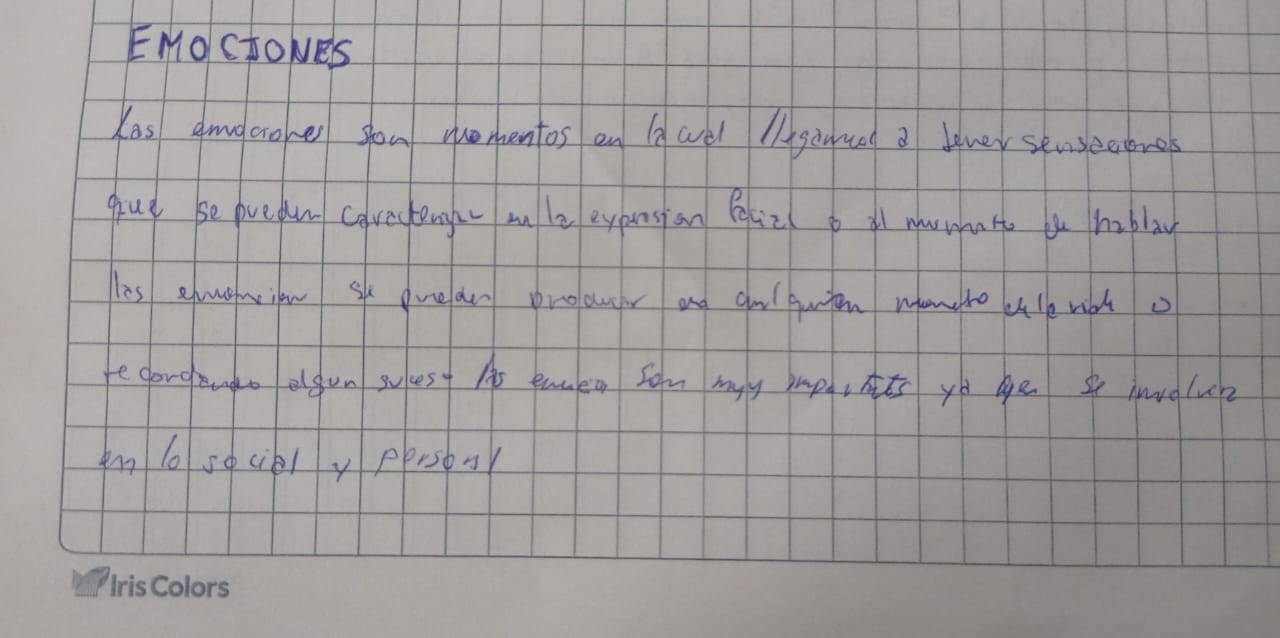 EMOCIONES
Las emociones son momentos en la cual llegamos a tener sensaciones
que se pueden caracterizar en la expresion facial o al momento de hablar
las emocion se pueden producir en cualquier momento de la vida o
recordando algun suceso las son muy importantes ya que se involucra
en lo social y personal
Iris Colors